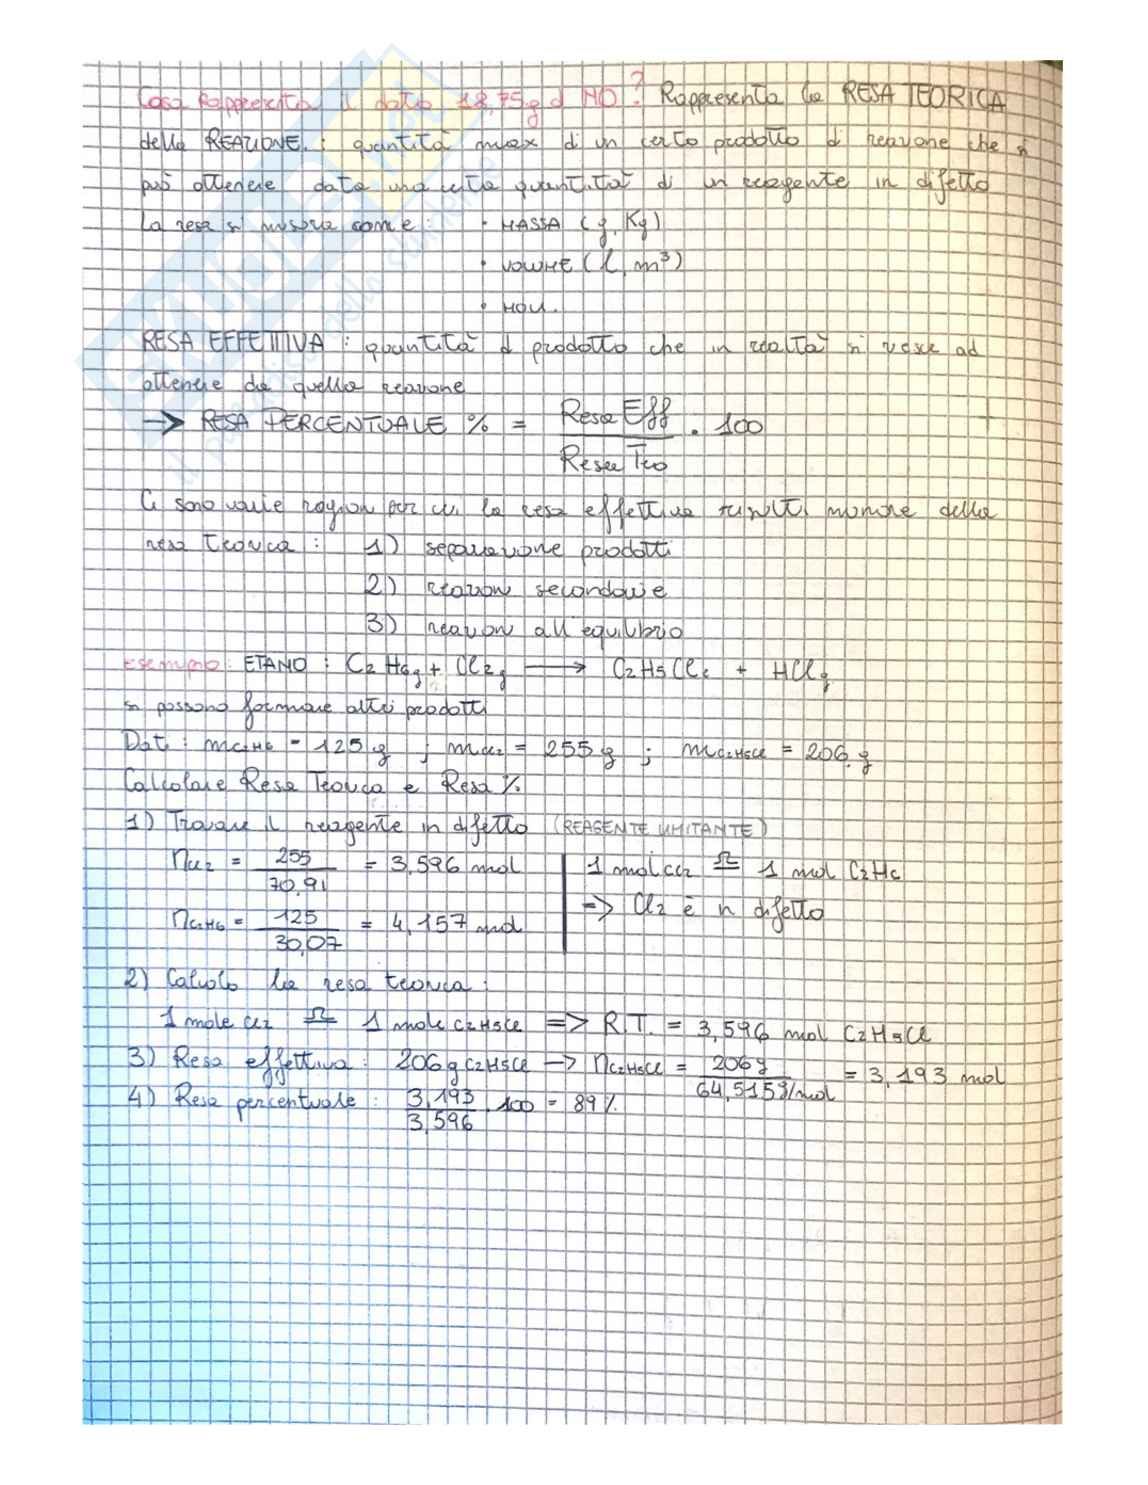 Cosa Rappresenta il dato 18,75g di NO? Rappresenta la RESA TEORICA
della REAZIONE. : quantità max di un certo prodotto di reazione che si
può ottenere data una certa quantità di un reagente in difetto
La resa si misura come : • MASSA (g, Kg)
• VOLUME (l, m³)
• MOLI.
RESA EFFETTIVA : quantità di prodotto che in realtà si riesce ad
ottenere da quella reazione
→ RESA PERCENTUALE % = Resa Eff / Resa Teo . 100
Ci sono varie ragioni per cui la resa effettiva risulti minore della
resa teorica : 1) separazione prodotti
2) reazioni secondarie
3) reazioni all'equilibrio
Esempio: ETANO : C2H6g + Cl2g → C2H5Cle + HClg
si possono formare altri prodotti
Dati : mC2H6 = 125g ; mCl2 = 255g ; mC2H5Cl = 206g
Calcolare Resa Teorica e Resa %
1) Trovare il reagente in difetto (REAGENTE LIMITANTE)
nCl2 = 255 / 70,91 = 3,596 mol | 1 mol Cl2 ≏ 1 mol C2H6
=> Cl2 è in difetto
nC2H6 = 125 / 30,07 = 4,157 mol
2) Calcolo la resa teorica :
1 mole Cl2 ≏ 1 mole C2H5Cl => R.T. = 3,596 mol C2H5Cl
3) Resa effettiva : 206g C2H5Cl → nC2H5Cl = 206g / 64,515g/mol = 3,193 mol
4) Resa percentuale : 3,193 / 3,596 . 100 = 89%